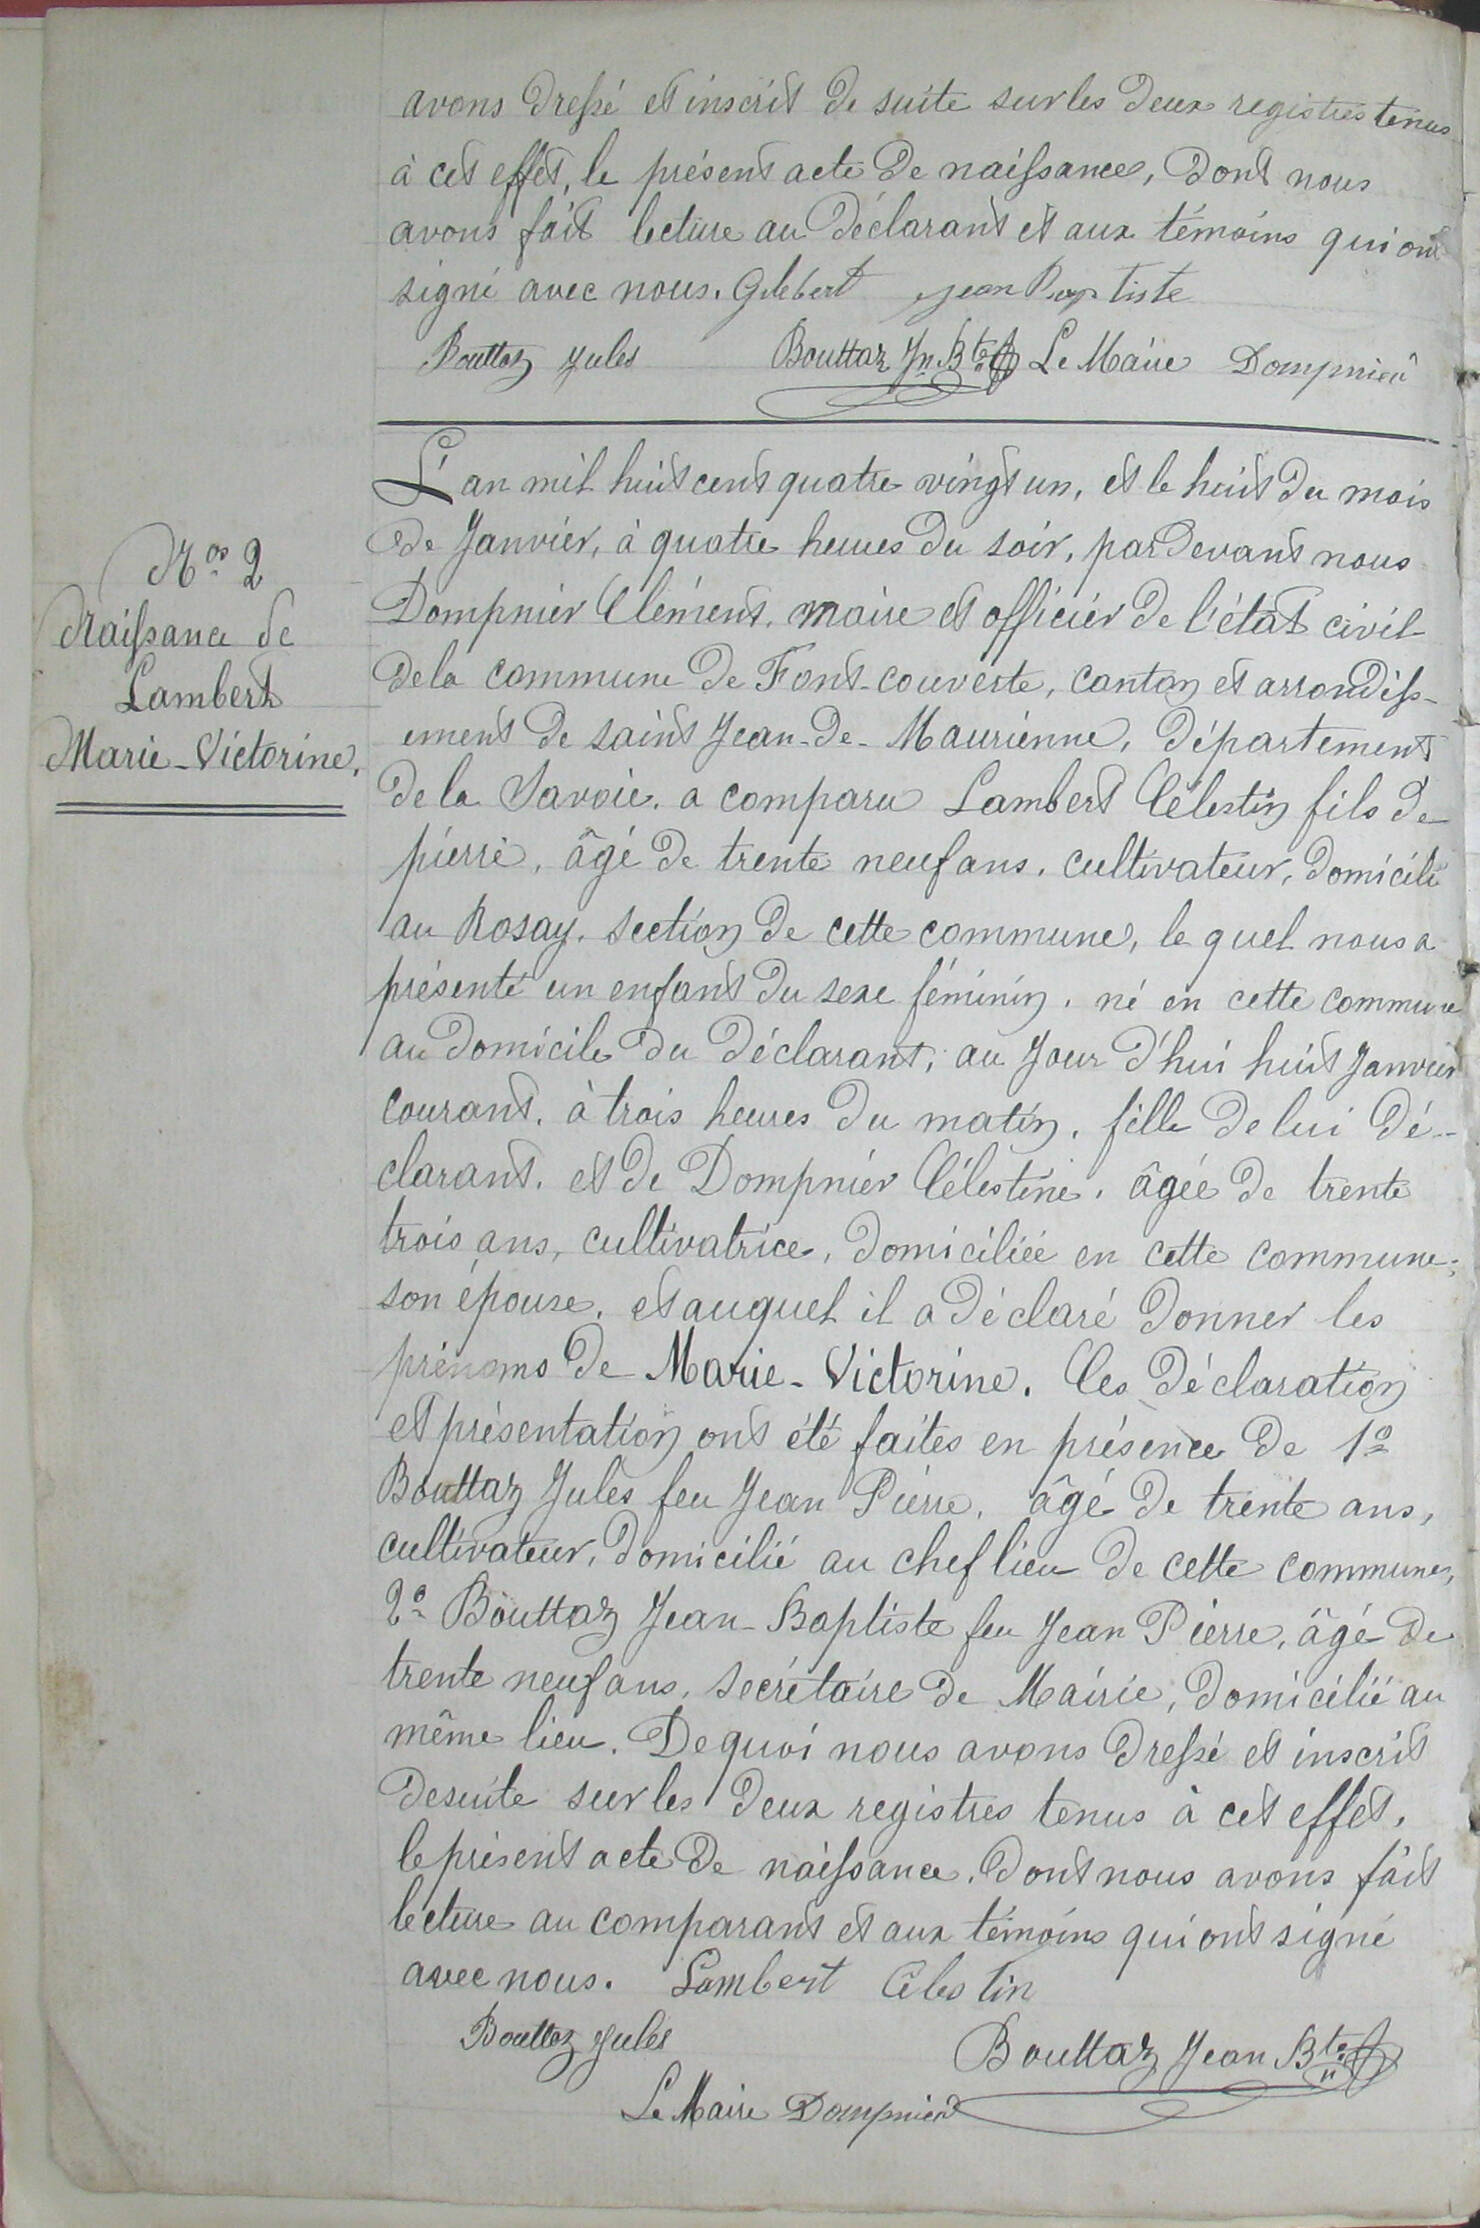 avons dressé et inscrit de suite sur les deux registres tenus
à cet effet, le présent acte de naissance, dont nous
avons fait lecture au déclarant et aux témoins qui ont
signé avec nous. Gilebert jean Baptiste
Bouttaz jules Bouttaz Jn Bte Le Maire Dompnier
L'an mil huit cent quatre vingt un, et le huit du mois
de Janvier, à quatre heures du soir, pardevant nous
Nos 2
Dompnier Clément, maire et officier de l'état civil
Naissance de
dela commune de Font-couverte, canton et arrondiss-
Lambert
ement de saint Jean-de-Maurienne, département
Marie-Victorine.
dela Savoie, a comparu Lambert Célestin fils de
pierre, âgé de trente neuf ans, cultivateur, domicilié
au Rosay, section de cette commune, le quel nous a
présenté un enfant du sexe féminin, né en cette commune
au domicile du déclarant, au jour d'hui huit Janvier
courant, à trois heures du matin, fille de lui dé-
clarant, et de Dompnier Célestine, âgée de trente
trois ans, cultivatrice, domiciliée en cette commune,
son épouse, et auquel il a déclaré donner les
prénoms de Marie-Victorine. Ces déclaration
et présentation ont été faites en présence de 1º
Bouttaz Jules feu Jean Pierre, âgé de trente ans,
cultivateur, domicilié au chef lieu de cette commune,
2º Bouttaz Jean-Baptiste feu Jean Pierre, âgé de
trente neuf ans, secrétaire de Mairie, domicilié au
même lieu. De quoi nous avons dressé et inscrit
desuite sur les deux registres tenus à cet effet,
le présent acte de naissance, dont nous avons fait
lecture au comparant et aux témoins qui ont signé
avec nous. Lambert Célestin
Bouttaz jules Bouttaz Jean Bte
Le Maire Dompnier